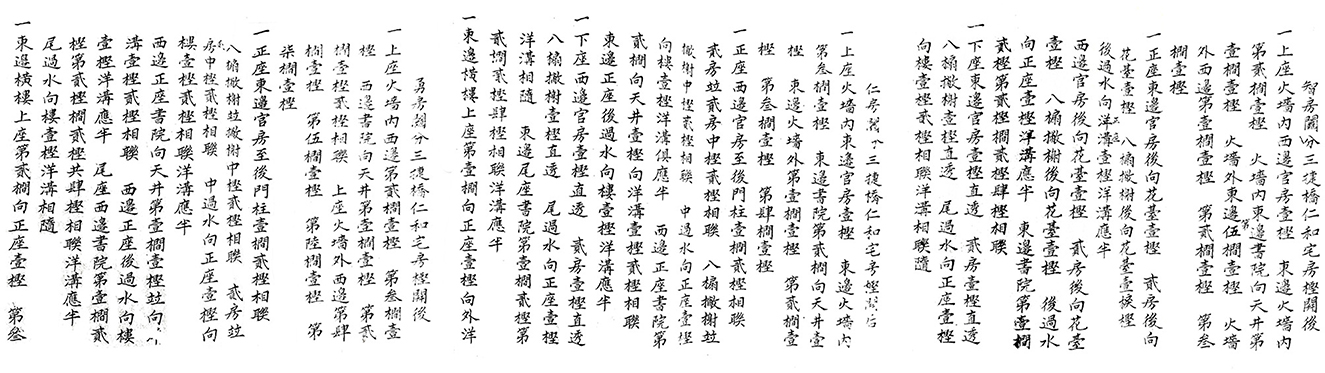 智房鬮分三復橋仁和宅房樫開後
一上座火墻內西邊官房壹樫　東邊火墻內
第貳櫊壹樫　火墻內東邊書院向天井第
壹櫊壹樫　火墻外東邊伍櫊壹樫　火墻
外西邊第壹櫊壹樫　第貳櫊壹樫　第叁
櫊壹樫
一正座東邊官房後向花臺壹樫　貳房後向
花臺壹樫　八櫊撒樹後向花臺壹樫
後過水向正座洋溝壹樫洋溝應半
西邊官房後向花臺壹樫　貳房後向花臺
壹樫　八櫊撒樹後向花臺壹樫　後過水
向正座壹樫洋溝應半　東邊書院第壹櫊
貳樫第貳櫊貳樫肆樫相聯
一下座東邊官房壹樫直透　貳房壹樫直透
八櫊撒樹壹樫直透　尾過水向正座壹樫
向樓壹樫貳樫相聯洋溝相隨
仁房鬮分三復橋仁和宅房樫開后
一上座火墻內東邊官房壹樫　東邊火墻內
第叁櫊壹樫　東邊書院第貳櫊向天井壹
樫　東邊火墻外第壹櫊壹樫　第貳櫊壹
樫　第叁櫊壹樫　第肆櫊壹樫
一正座西邊官房至後門柱壹櫊貳樫相聯
貳房竝貳房中樫貳樫相聯　八櫊撒樹竝
撒樹中樫貳樫相聯　中過水向正座壹樫
向樓壹樫洋溝俱應半　西邊正座書院第
貳櫊向天井壹樫向洋溝壹樫貳樫相聯
東邊正座後過水向樓壹樫洋溝應半
一下座西邊官房壹樫直透　貳房壹樫直透
八櫊撒樹壹樫直透　尾過水向正座壹樫
洋溝相隨　東邊尾座書院第壹櫊貳樫第
貳櫊貳樫肆樫相聯洋溝應半
一東邊橫樓上座第壹櫊向正座壹樫向外洋
勇房鬮分三復橋仁和宅房樫開後
一上座火墻內西邊第貳櫊壹樫　第叁櫊壹
樫　西邊書院向天井第壹櫊壹樫　第貳
櫊壹樫貳樫相聯　上座火墻外西邊第肆
櫊壹樫　第伍櫊壹樫　第陸櫊壹樫　第
柒櫊壹樫
一正座東邊官房至後門柱壹櫊貳樫相聯
八櫊撒樹竝撒樹中樫貳樫相聯　貳房竝
房中樫貳樫相聯　中過水向正座壹樫向
樓壹樫貳樫相聯洋溝應半
西邊正座書院向天井第壹櫊壹樫竝向
溝壹樫貳樫相聯　西邊正座後過水向樓
壹樫洋溝應半　尾座西邊書院第壹櫊貳
樫第貳櫊貳樫共肆樫相聯洋溝應半
尾過水向樓壹樫洋溝相隨
一東邊橫樓上座第貳櫊向正座壹樫　第叁